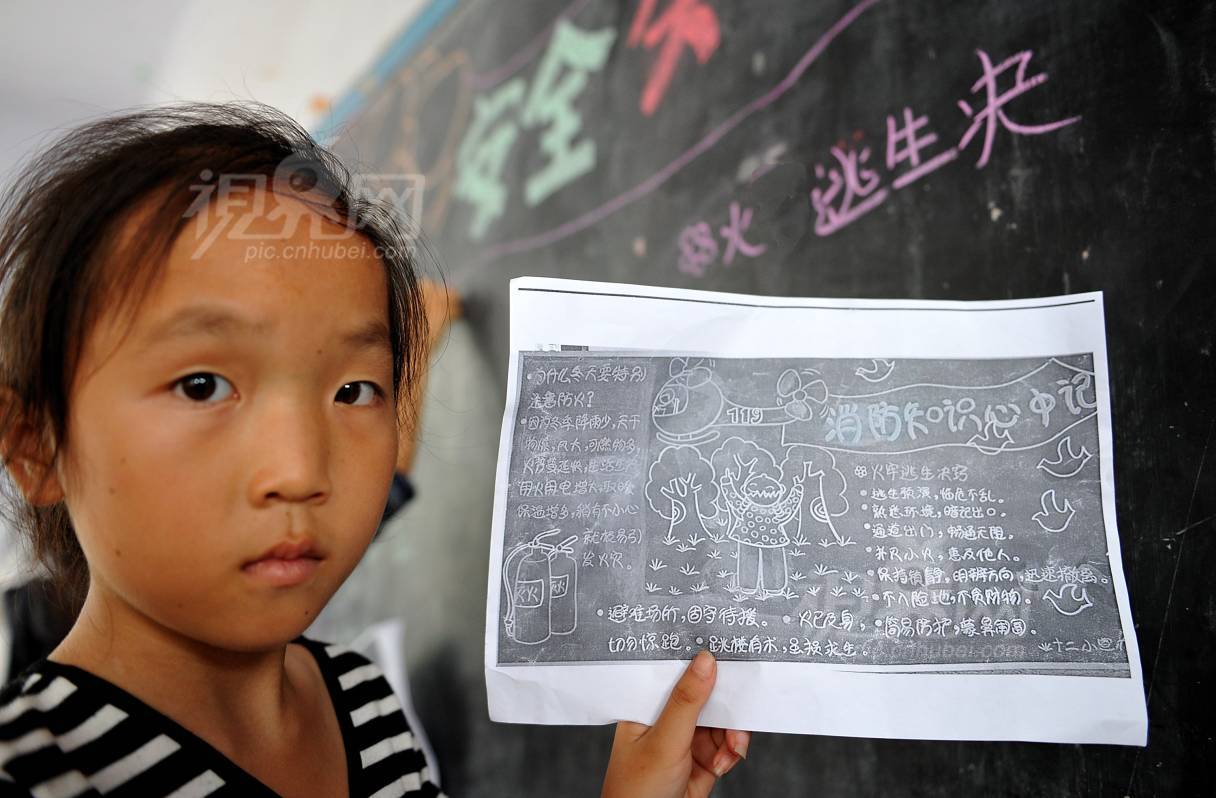 視界网
pic.cnhubei.com
安全
火 逃生决
为什么冬天要特别
注意防火？
因为冬季降雨少，天干
物燥，风大，可燃物多，
用火用电增大，取暖
保温增多，稍有不小心
就极易引
发火灾。
119
消防知识心中记
火牢逃生决窍
逃生预演，临危不乱。
熟悉环境，暗记出口。
通道出门，畅通无阻。
扑灭小火，惠及他人。
保持镇静，明辨方向，迅速撤离。
不入险地，不贪财物。
简易防护，蒙鼻匍匐。
避难场所，固守待援。
火已及身，
切勿惊跑。
跳楼有术，虽损求生。
cnhubei.com